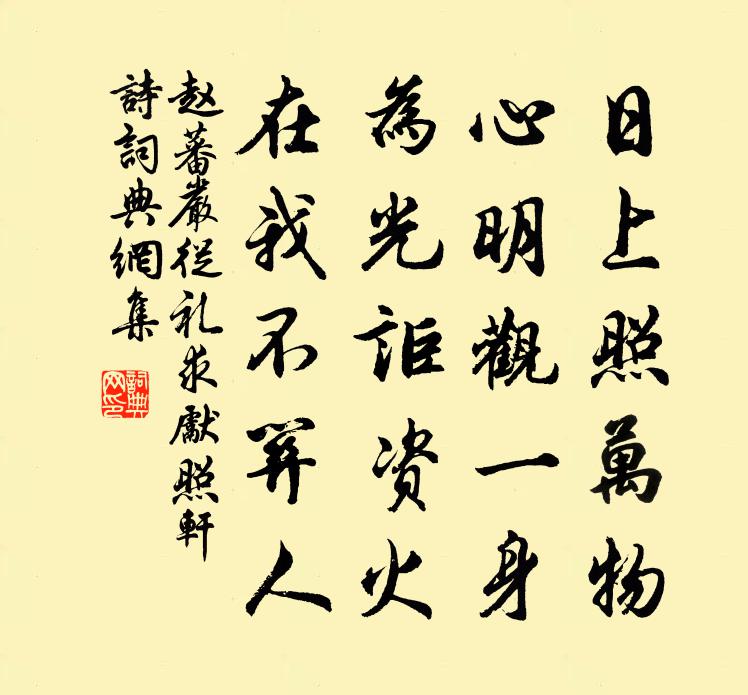 日上照萬物
心明觀一身
為光詎資火
在我不人
赵蕃嚴從礼求獻照軒
詩詞典網集
詞典網印